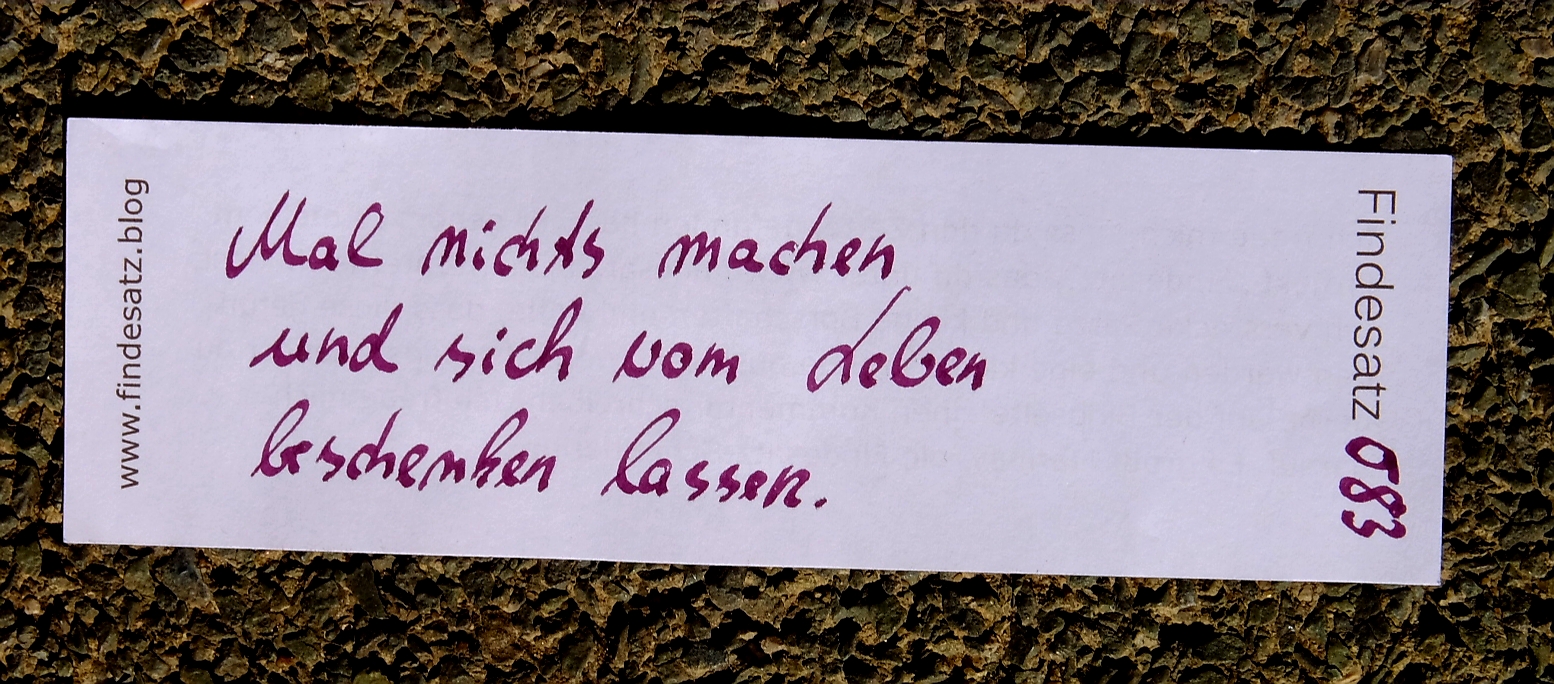 www.findesatz.blog
Mal nichts machen
und sich vom Leben
beschenken lassen.
Findesatz 083